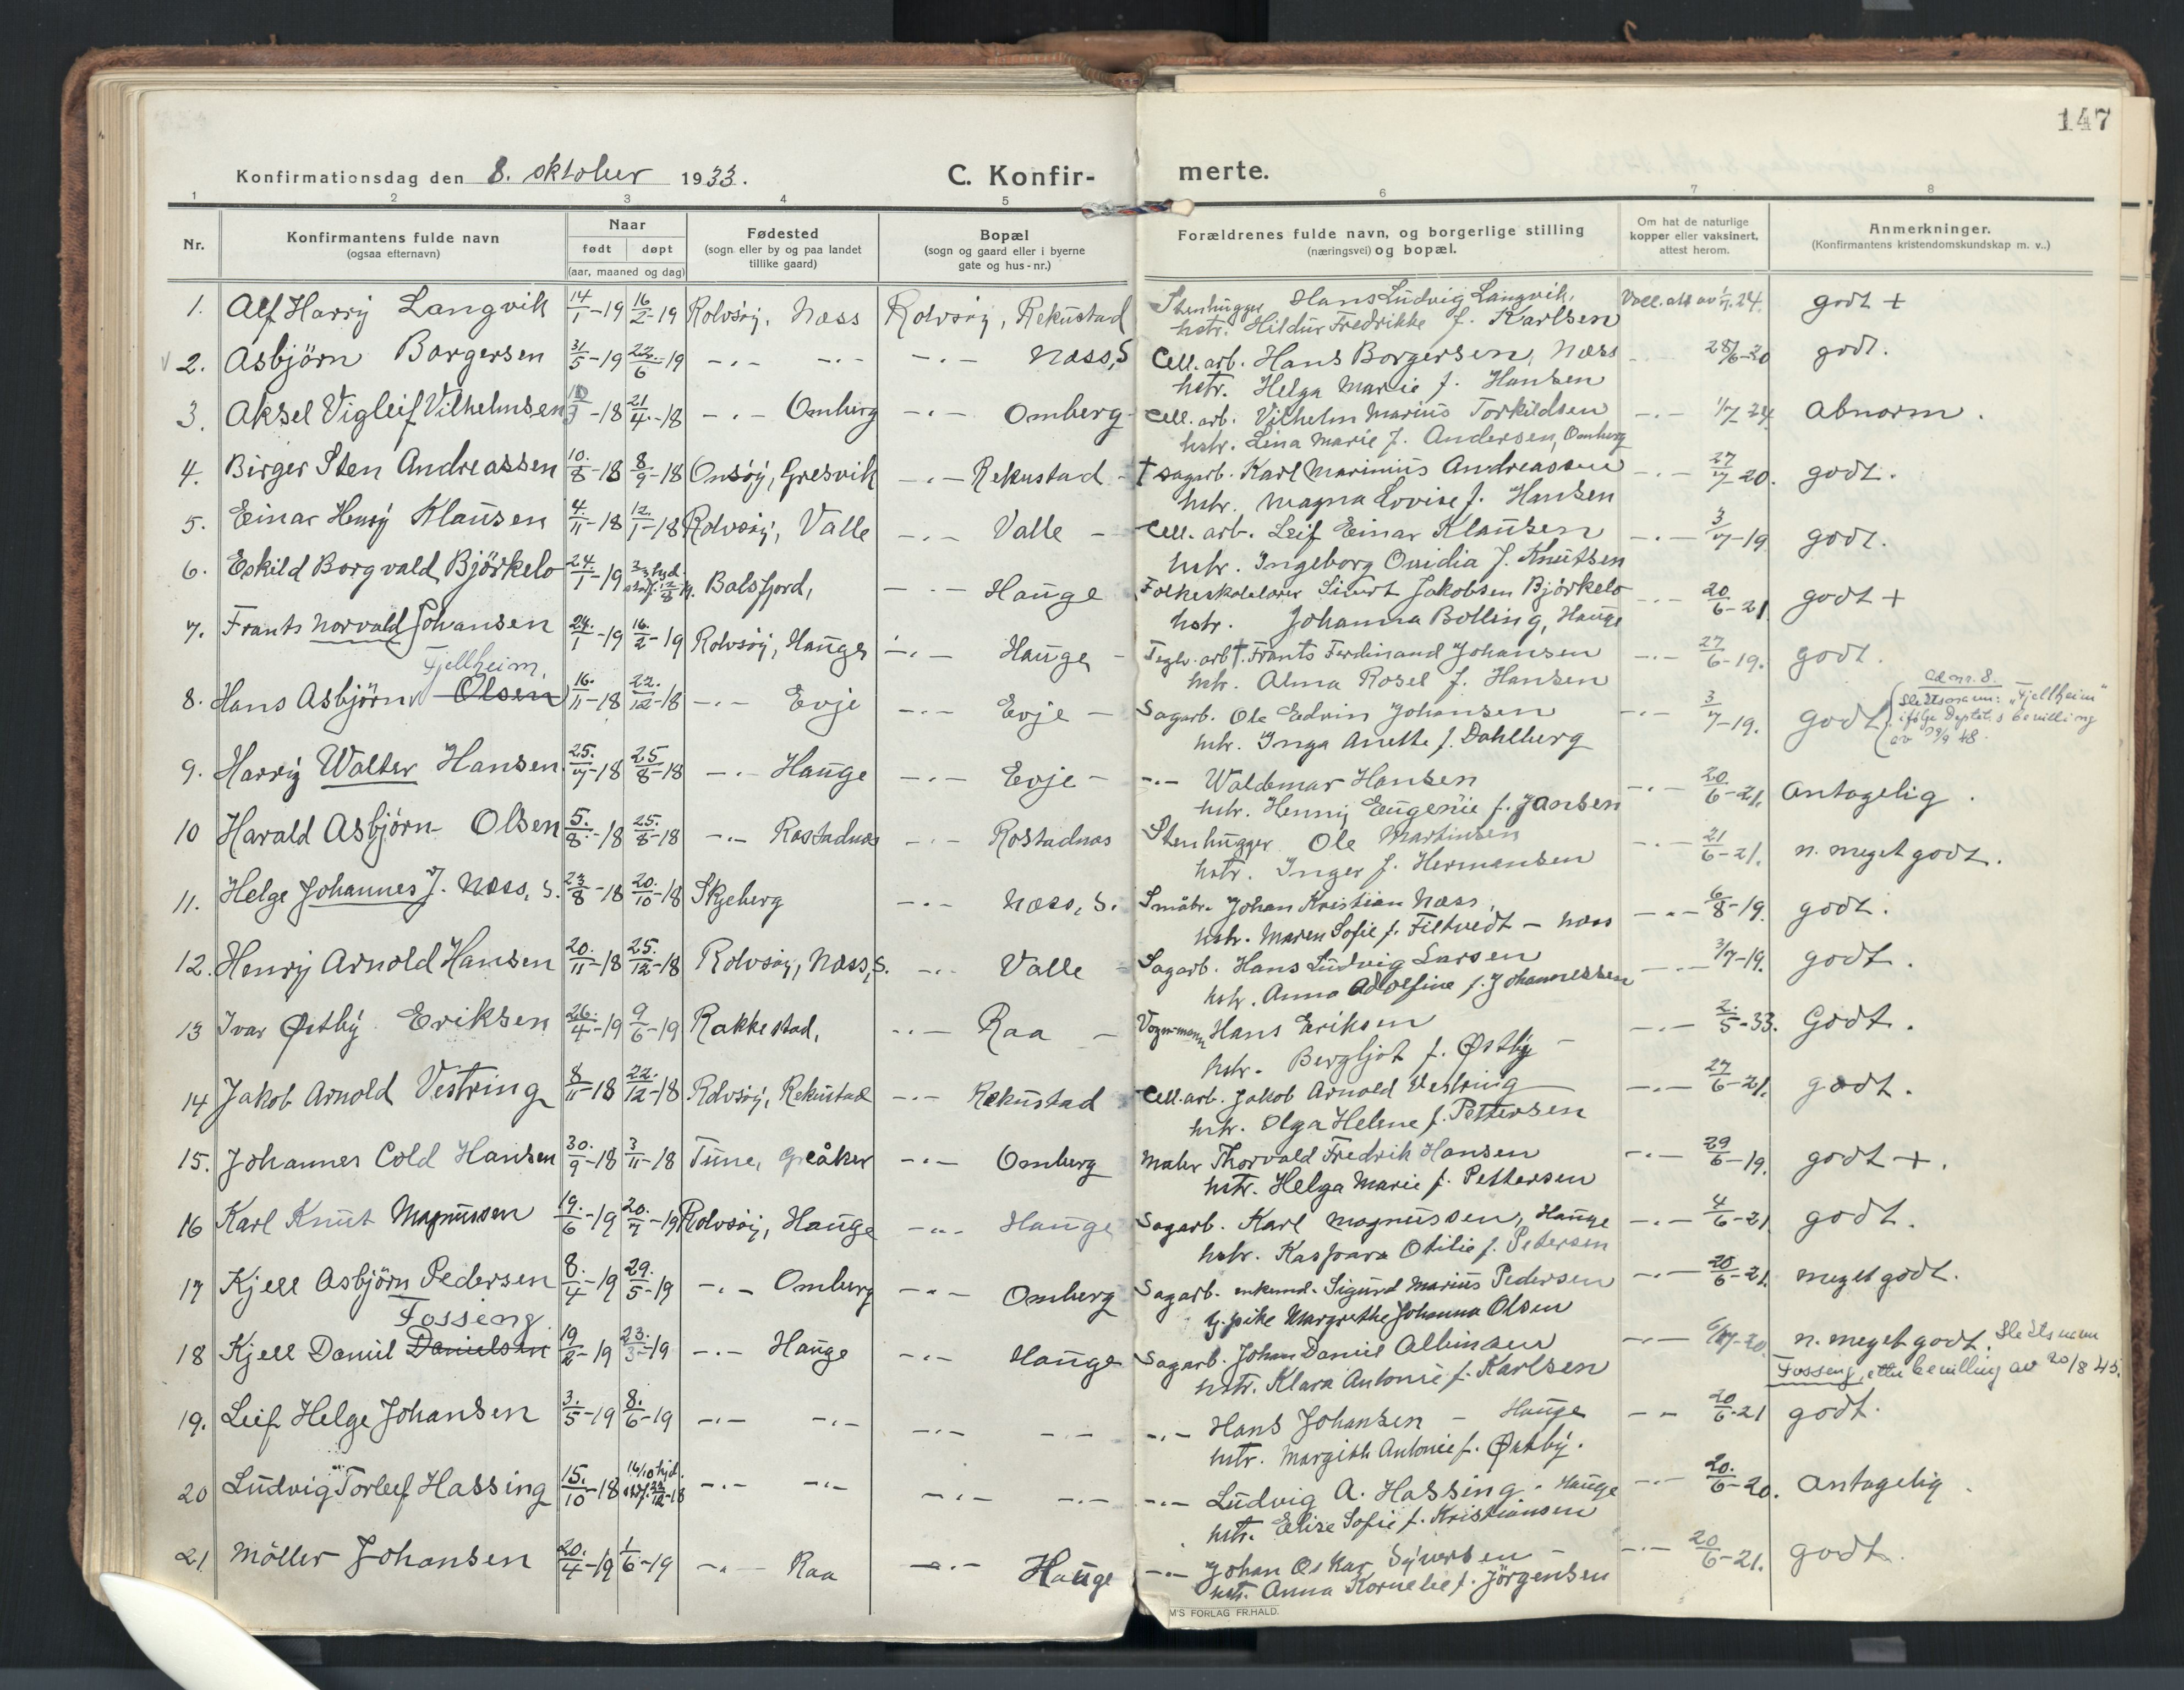 147
Konfirmationsdag den 8. oktober 1933.
C. Konfir- merte.
1 2 3 4 5 6 7 8
Nr.
Konfirmantens fulde navn
(ogsaa efternavn)
Naar
født døpt
(aar, maaned og dag)
Fødested
(sogn eller by og paa landet
tillike gaard)
Bopæl
(sogn og gaard eller i byerne
gate og hus-nr.)
Forældrenes fulde navn, og borgerlige stilling
(næringsvei) og bopæl.
Om hat de naturlige
kopper eller vaksinert,
attest herom.
Anmerkninger.
(Konfirmantens kristendomskundskap m. v..)
1. Alf Harry Langvik 14/1-19 16/2-19 Rolvsöy, Næss Rolvsöy, Rekustad Stenhugger Hans Ludvig Langvik, Vacc. att av 1/7.24. godt +
hstr. Hildur Fredrikke f. Karlsen
2. Asbjörn Borgersen 31/5-19 22/6-19 -.- -.- -.- Næss, S Cell. arb. Hans Borgersen, Næss 28/6-20 godt.
hstr. Helga Marie f. Hansen
3. Aksel Vigleif Vilhelmsen 10/3-18 21/4-18 -.- Omberg -.- Omberg Cell. arb. Vilhelm Marius Torkildsen -.- 1/7 24 Abnorm.
hstr. Lina Marie f. Andersen, Omberg
4. Birger Sten Andreassen 10/8-18 8/9-18 Onsöy, Gresvik -.- Rekustad - † sagarb. Karl Marinius Andreassen -.- 27/7 20. godt.
hstr. Magna Lovise f. Hansen
5. Einar Henry Klausen 4/11-18 12/1-18 Rolvsöy, Valle -.- Valle - Cell. arb. Leif Einar Klausen -.- 3/7-19. godt.
hstr. Ingeborg Ovidia f. Knutsen
6. Eskild Borgvald Björkelo 24/1-19 Balsfjord, -.- Hauge Folkeskolelærer Sivert Jakobsen Björkelo -.- 20/6-21 godt +
hstr. Johanna Bolling, Hauge
7. Frants Norvald Johansen 24/1-19 16/2-19 Rolvsöy, Hauge -.- Hauge - Teglv. arb †. Frants Ferdinand Johansen -.- 27/6-19. godt.
hstr. Alma Rosel f. Hansen
Fjellheim
8. Hans Asbjörn Olsen 16/11-18 22/12-18 -.- Evje -.- Evje - Sagarb. Ole Edvin Johansen -.- 3/7-19. godt
hstr. Inga Anette f. Dahlberg
Ad nr. 8.
Slektsnavn: "Fjellheim"
ifölge Deptets bevilling
av 29/9 48.
9. Harry Walter Hansen 25/7-18 25/8-18 -.- Hauge -.- Evje - -.- Waldemar Hansen -.- 20/6-21. Antagelig.
hstr. Henny Eugenie f. Jansen
10 Harald Asbjörn Olsen 5/8-18 25/8-18 -.- Rostadnes -.- Rostadnes Stenhugger Ole Martinsen -.- 21/6-21. n. meget godt.
hstr. Inger f. Hermansen
11. Helge Johannes J. Næss, S. 23/8-18 20/10-18 Skjeberg -.- Næss, S. Småbr. Johan Kristian Næss, -.- 6/8-19. godt.
hstr. Maren Sofie f. Filtvedt - Næss
12. Henry Arnold Hansen 20/11-18 25/12-18 Rolvsöy, Næss, S. -.- Valle - Sagarb. Hans Ludvig Larsen -.- 3/7-19. godt.
hstr. Anna Adolfine f. Johannessen
13 Ivar Østby Eriksen 26/4-19 9/6-19 Rakkestad, -.- Raa - Vognmann Hans Eriksen -.- 2/5-33. Godt.
hstr. Bergljot f. Østby -
14 Jakob Arnold Vestring 8/11-18 22/12-18 Rolvsöy, Rekustad -.- Rekustad Cell.arb. Jakob Arnold Vestring -.- 27/6-21. godt.
hstr. Olga Helene f. Pettersen
15. Johannes Cold Hansen 30/9-18 3/11-18 Tune, Greåker -.- Omberg Maler Thorvald Fredrik Hansen -.- 29/6-19. godt +.
hstr. Helga Marie f. Pettersen
16 Karl Knut Magnussen 19/6-19 20/7-19 Rolvsöy, Hauge -.- Hauge Sagarb. Karl Magnussen, Hauge -.- 4/6-21 godt.
hstr. Kaspara Otilie f. Petersen
17 Kjell Asbjörn Pedersen 8/4-19 29/5-19 -.- Omberg -.- Omberg Sagarb. enkemd. Sigurd Marius Pedersen -.- 20/6-21. meget godt.
g. pike Margrethe Johanna Olsen
Fosseng
18 Kjell Daniel Danielsen 19/2-19 23/3-19 -.- Hauge -.- Hauge Sagarb. Johan Daniel Albinsen -.- n. meget godt. Slektsnavn
hstr. Klara Antonie f. Karlsen Fosseng, etter bevilling av 20/8 45.
19. Leif Helge Johansen 3/5-19 8/6-19 -.- -.- -.- -.- -.- Hans Johansen - Hauge -.- 20/6-21 godt.
hstr. Margith Antonie f. Østby.
20 Ludvig Torleif Hassing 15/10-18 -.- -.- -.- -.- -.- Ludvig A. Hassing - Hauge -.- 20/6-20. Antagelig.
hstr. Elise Sofie f. Kristiansen
21 Möller Johansen 20/4-19 1/6-19 -.- Raa -.- Hauge -.- Johan Oskar Syversen - -.- 20/6-21. godt.
hstr. Anna Kornelie f. Jörgensen
M'S FORLAG FR.HALD.